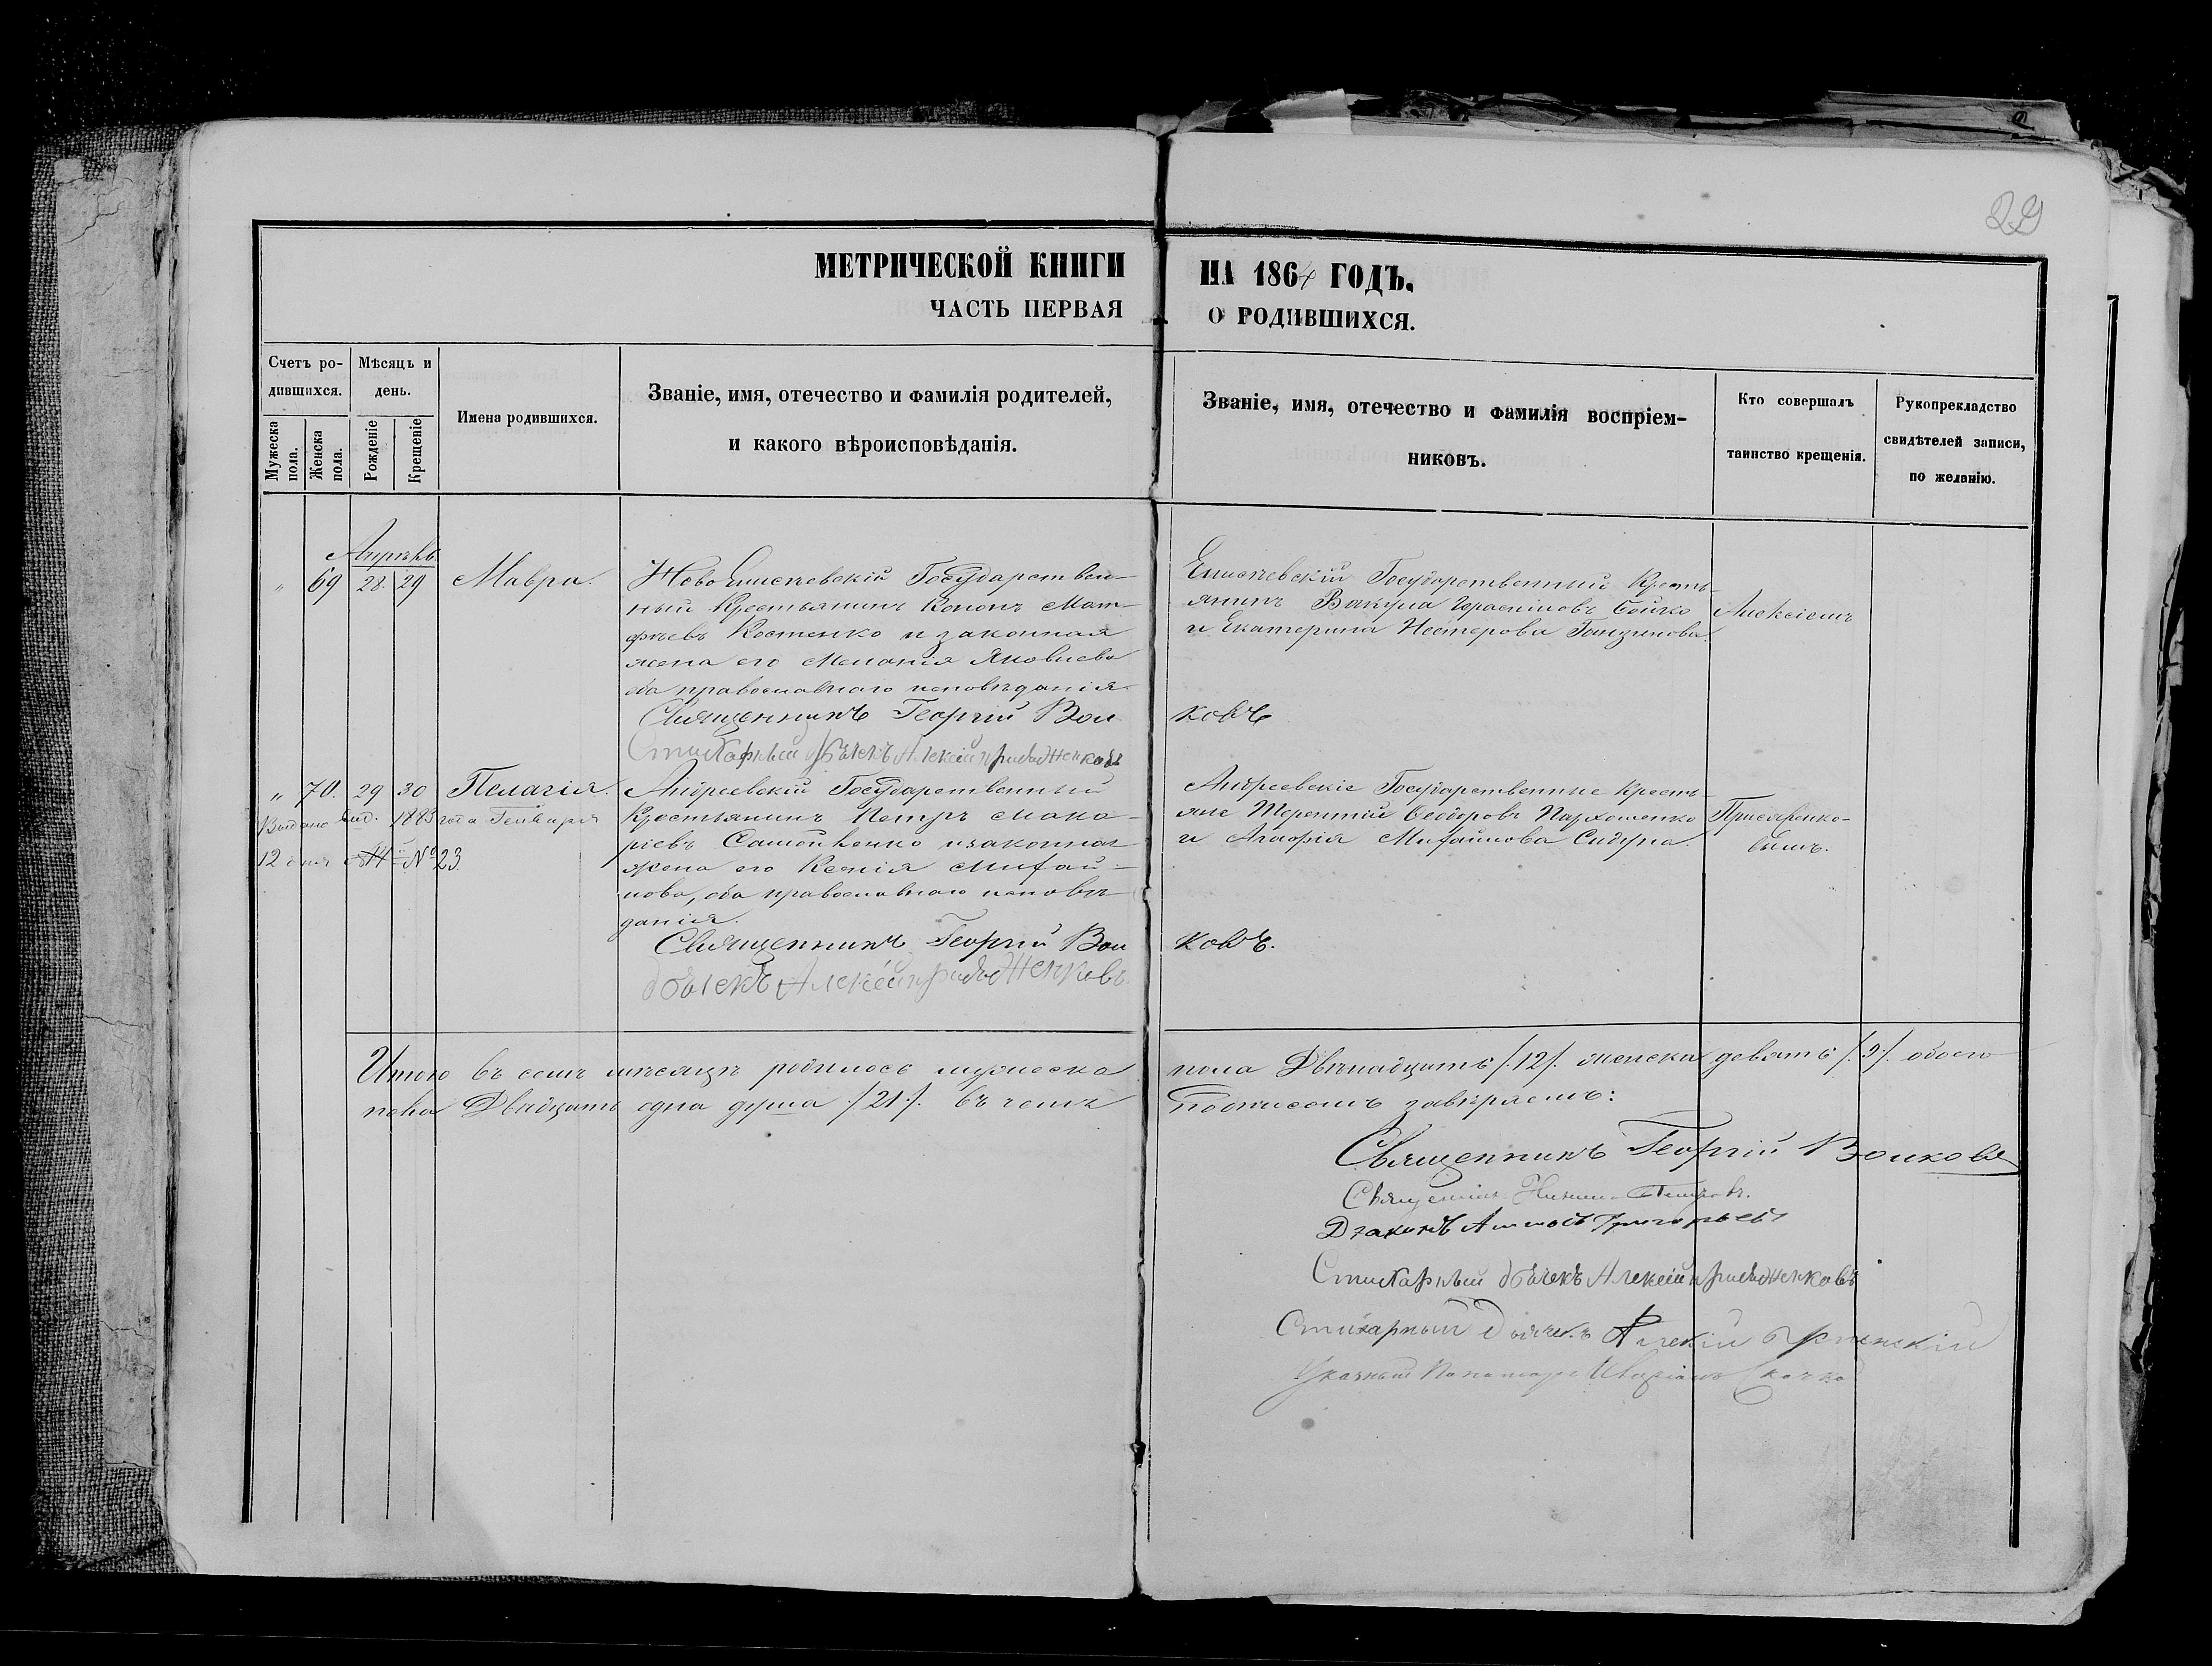 29
МЕТРИЧЕСКОЙ КНИГИ НА 1864 ГОДЪ.
ЧАСТЬ ПЕРВАЯ О РОДИВШИХСЯ.
Счетъ родившихся.
Мужеска пола.
Женска пола.
Мѣсяцъ и день.
Рожденіе
Крещеніе
Имена родившихся.
Званіе, имя, отечество и фамилія родителей,
и какого вѣроисповѣданія.
Званіе, имя, отечество и фамилія воспріем-
никовъ.
Кто совершалъ
таинство крещенія.
Рукоприкладство
свидѣтелей записи,
по желанію.
Апрѣль.
„ 69 28. 29 Мавра.
Государствен-
ный Крестьянинъ Кононъ Мат-
фѣевъ Костенко и законная
жена его Меланія Яковлева
оба православнаго исповѣданія.
Священникъ Георгій Волковъ
Стихарный дьячекъ Алексій
Государственный Кресть-
янинъ Вакула Бойко
и Екатерина Нестерова
Алексіемъ
„ 70. 29 30 Пелагія.
Выдано 1883 года Генваря
12 дня № 23.
Андреевскій Государственный
Крестьянинъ Петръ Мака-
ріевъ Самойленко и законная
жена его Ксенія Михай-
лова, оба православнаго исповѣ-
данія.
Священникъ Георгій Волковъ.
дьячекъ Алексій
Андреевскіе Государственные Кресть-
яне Терентій Ѳеодоровъ Пархоменко
и Агафія Михайлова
Итого въ семъ мѣсяцѣ родилось мужеска пола Двѣнадцать /.12/. женска девять /.9/. обоего
пола Двадцать одна душа /21/. въ чемъ Подписомъ завѣряемъ:
Священникъ Георгій Волковъ
Священникъ Петровъ.
Діаконъ Григорьевъ
Стихарный дьячекъ Алексій
Стихарный дьячекъ Алексій Успенскій
Указный Пономарь